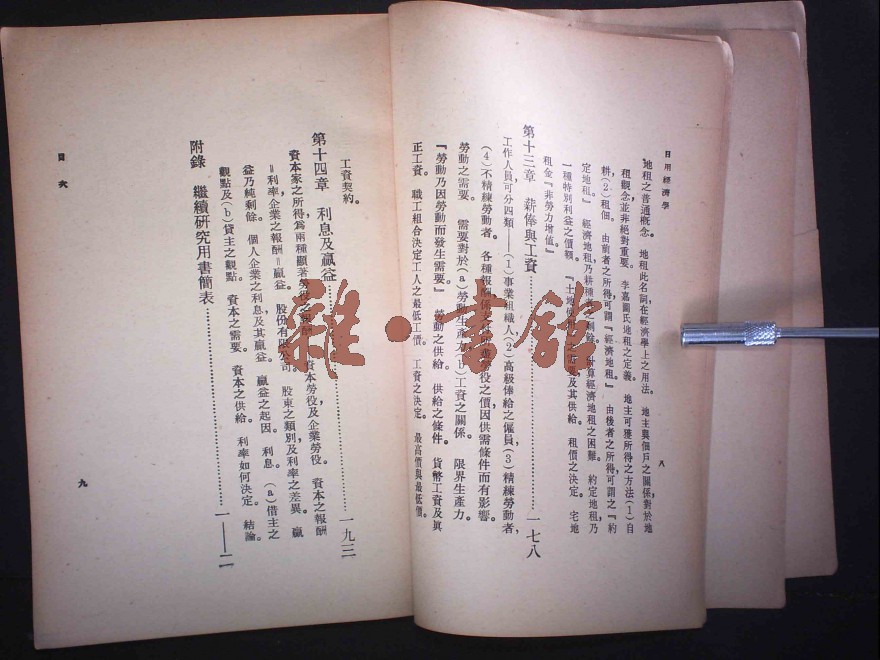 日用經濟學
八
地租之普通概念。 地租此名詞在經濟學上之用法。 地主與佃戶之關係,對於地
租觀念,並非絕對重要。 李嘉圖氏地租之定義。 地主可獲所得之方法(1)自
耕(2)租佃。 由前者之所得,可謂『經濟地租』 由後者之所得,可謂之『約
定地租』 經濟地租乃耕種者之剩餘。 計算經濟地租之困難。 約定地租乃
一種特別利益之價額。 『土地便利』之需要及其供給。 租價之決定。 宅地
租金『非勞力增值』
第十三章 薪俸與工資 一七八
工作人員可分四類——(1)事業組織人(2)高級俸給之僱員(3)精練勞動者,
(4)不精練勞動者。 各種報酬係支付所或勞役之價,因供需條件而有影響。
勞動之需要。 需要對於(a)勞動生產力(b)工資之關係。 限界生產力。
『勞動乃因勞動而發生需要』 勞動之供給。 供給之條件。 貨幣工資及眞
正工資。 職工組合決定工人之最低工價。 工資之決定。 最高價與最低價。
工資契約。
第十四章 利息及贏益 一九三
資本家之所得,爲兩種顯著勞役之報酬, 資本勞役,及企業勞役。 資本之報酬
=利率,企業之報酬=贏益。 股份有限公司。 股東之類別及利率之差異。 贏
益乃純剩餘。 個人企業之利息及其贏益。 贏益之起因。 利息。 (a)借主之
觀點及(b)貸主之觀點。 資本之需要。 資本之供給。 利率如何決定。 結論。
附錄 繼續研究用書簡表 一——二
目次
九
雜·書館